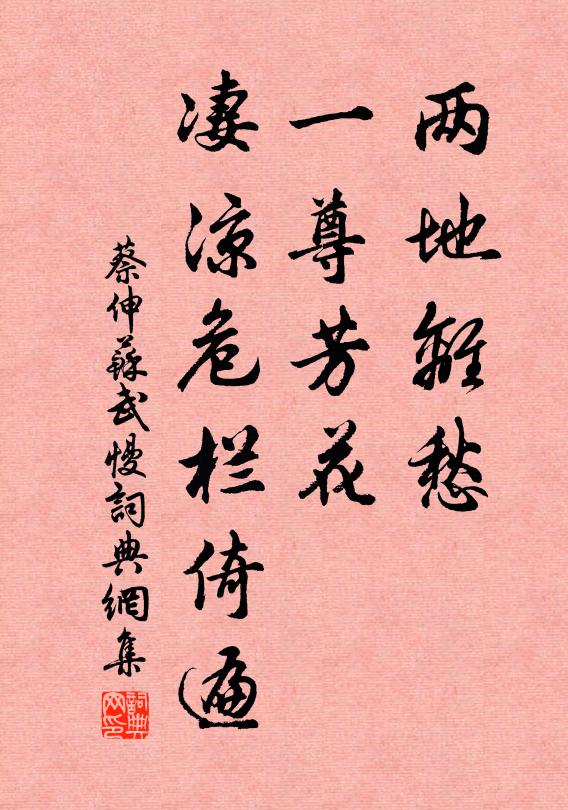 两地離愁
一尊芳花
凄涼危栏倚遍
蔡伸蘇武慢詞典網集
詞典网印